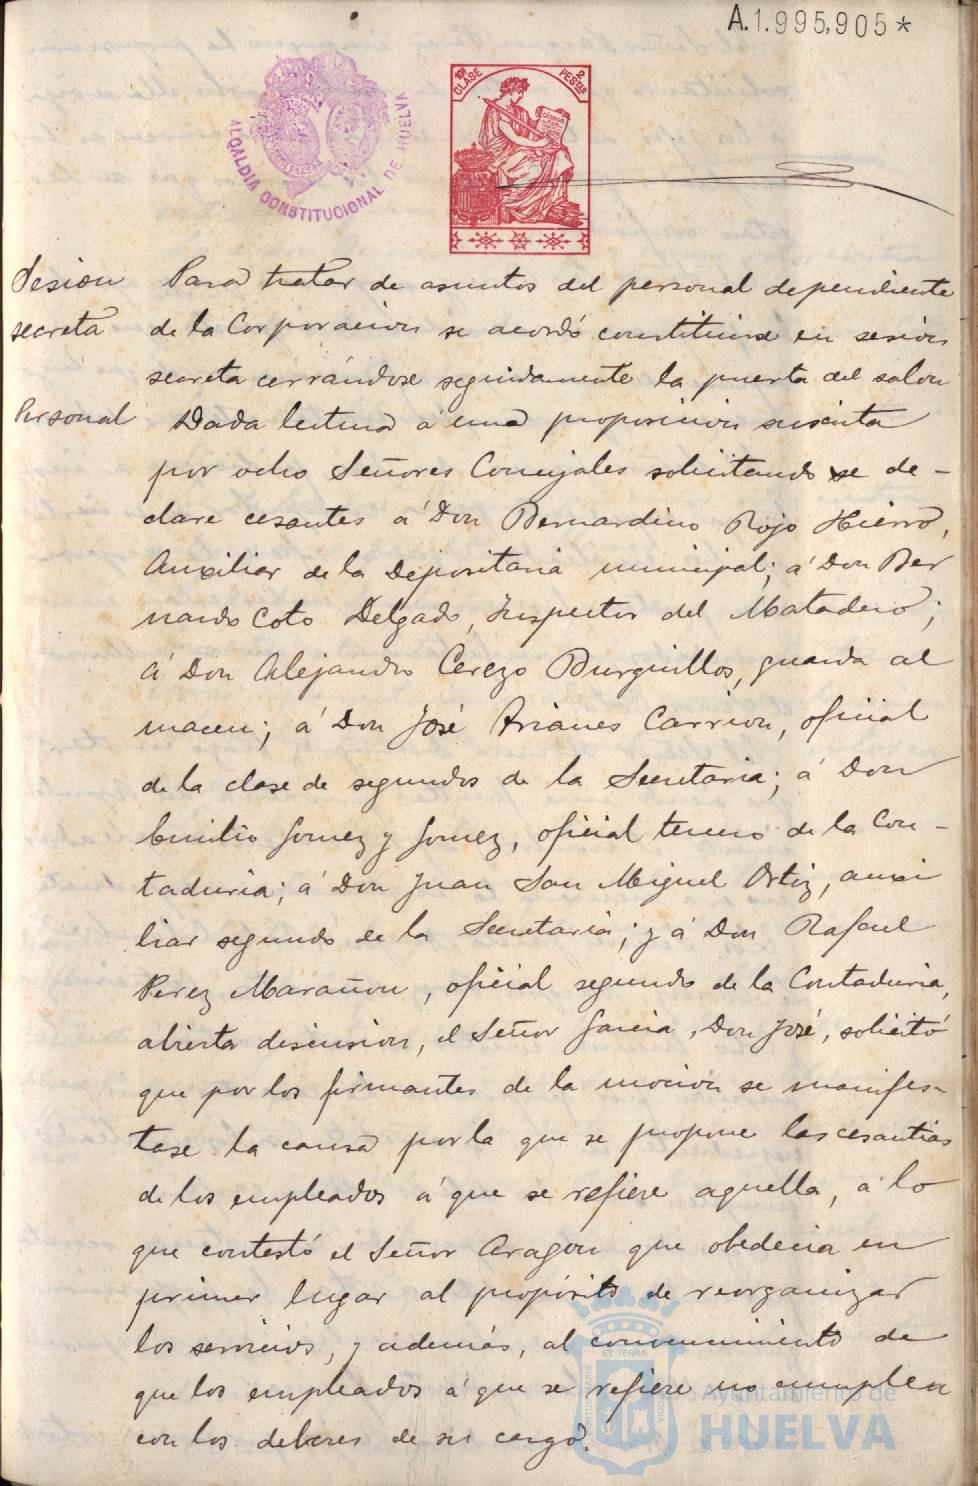 A.1.995,905*
ALCALDIA CONSTITUCIONAL DE HUELVA
10ª CLASE
2 PESTAS
Sesion
secreta
Para tratar de asuntos del personal dependiente
de la Corporacion se acordó constituirse en sesion
secreta cerrándose seguidamente la puerta del salon
Personal
Dada lectura á una proposicion suscrita
por ocho Señores Concejales solicitando se de-
clare cesantes á Don Bernardino Rojo Hierro,
Auxiliar de la Depositaria municipal; á Don Ber
nardo Coto Delgado, Inspector del Matadero;
á Don Alejandro Cerezo Burguillos, guarda al
macen; á Don José Arianes Carrion, oficial
de la clase de segundos de la Secretaria; á Don
Emilio Gomez y Gomez, oficial tercero de la Con-
taduria; á Don Juan San Miguel Ortiz, auxi
liar segundo de la Secretaria; y á Don Rafael
Perez Marañon, oficial segundo de la Contaduria,
abierta discusion, el Señor Garcia, Don José, solicitó
que por los firmantes de la mocion se manifes-
tase la causa por la que se propone las cesantias
de los empleados á que se refiere aquella, á lo
que contestó el Señor Aragon que obedecia en
primer lugar al propósito de reorganizar
los servicios, y además, al convencimiento de
que los empleados á que se refiere no cumplen
con los deberes de su cargo.
Ayuntamiento de
HUELVA